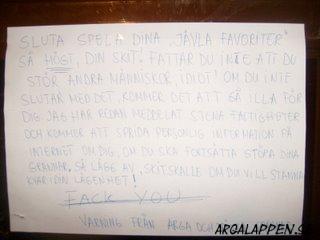 SLUTA SPELA DINA "JÄVLA FAVORITER"
SÅ HÖGT, DIN SKIT! FATTAR DU INTE ATT DU
STÖR ANDRA MÄNNISKOR, IDIOT! OM DU INTE
SLUTAR MED DET, KOMMER DET ATT GÅ ILLA FÖR
DIG. JAG HAR REDAN MEDDELAT STENA FASTIGHETER
OCH KOMMER ATT SPRIDA PERSONLIG INFORMATION PÅ
INTERNET OM DIG, OM DU SKA FORTSÄTTA STÖRA DINA
GRANNAR, SÅ LÄGG AV, SKITSKALLE OM DU VILL STANNA
KVAR I DIN LÄGENHET!
FACK YOU
VARNING FRÅN ARGA OCH
ARGALAPPEN.S